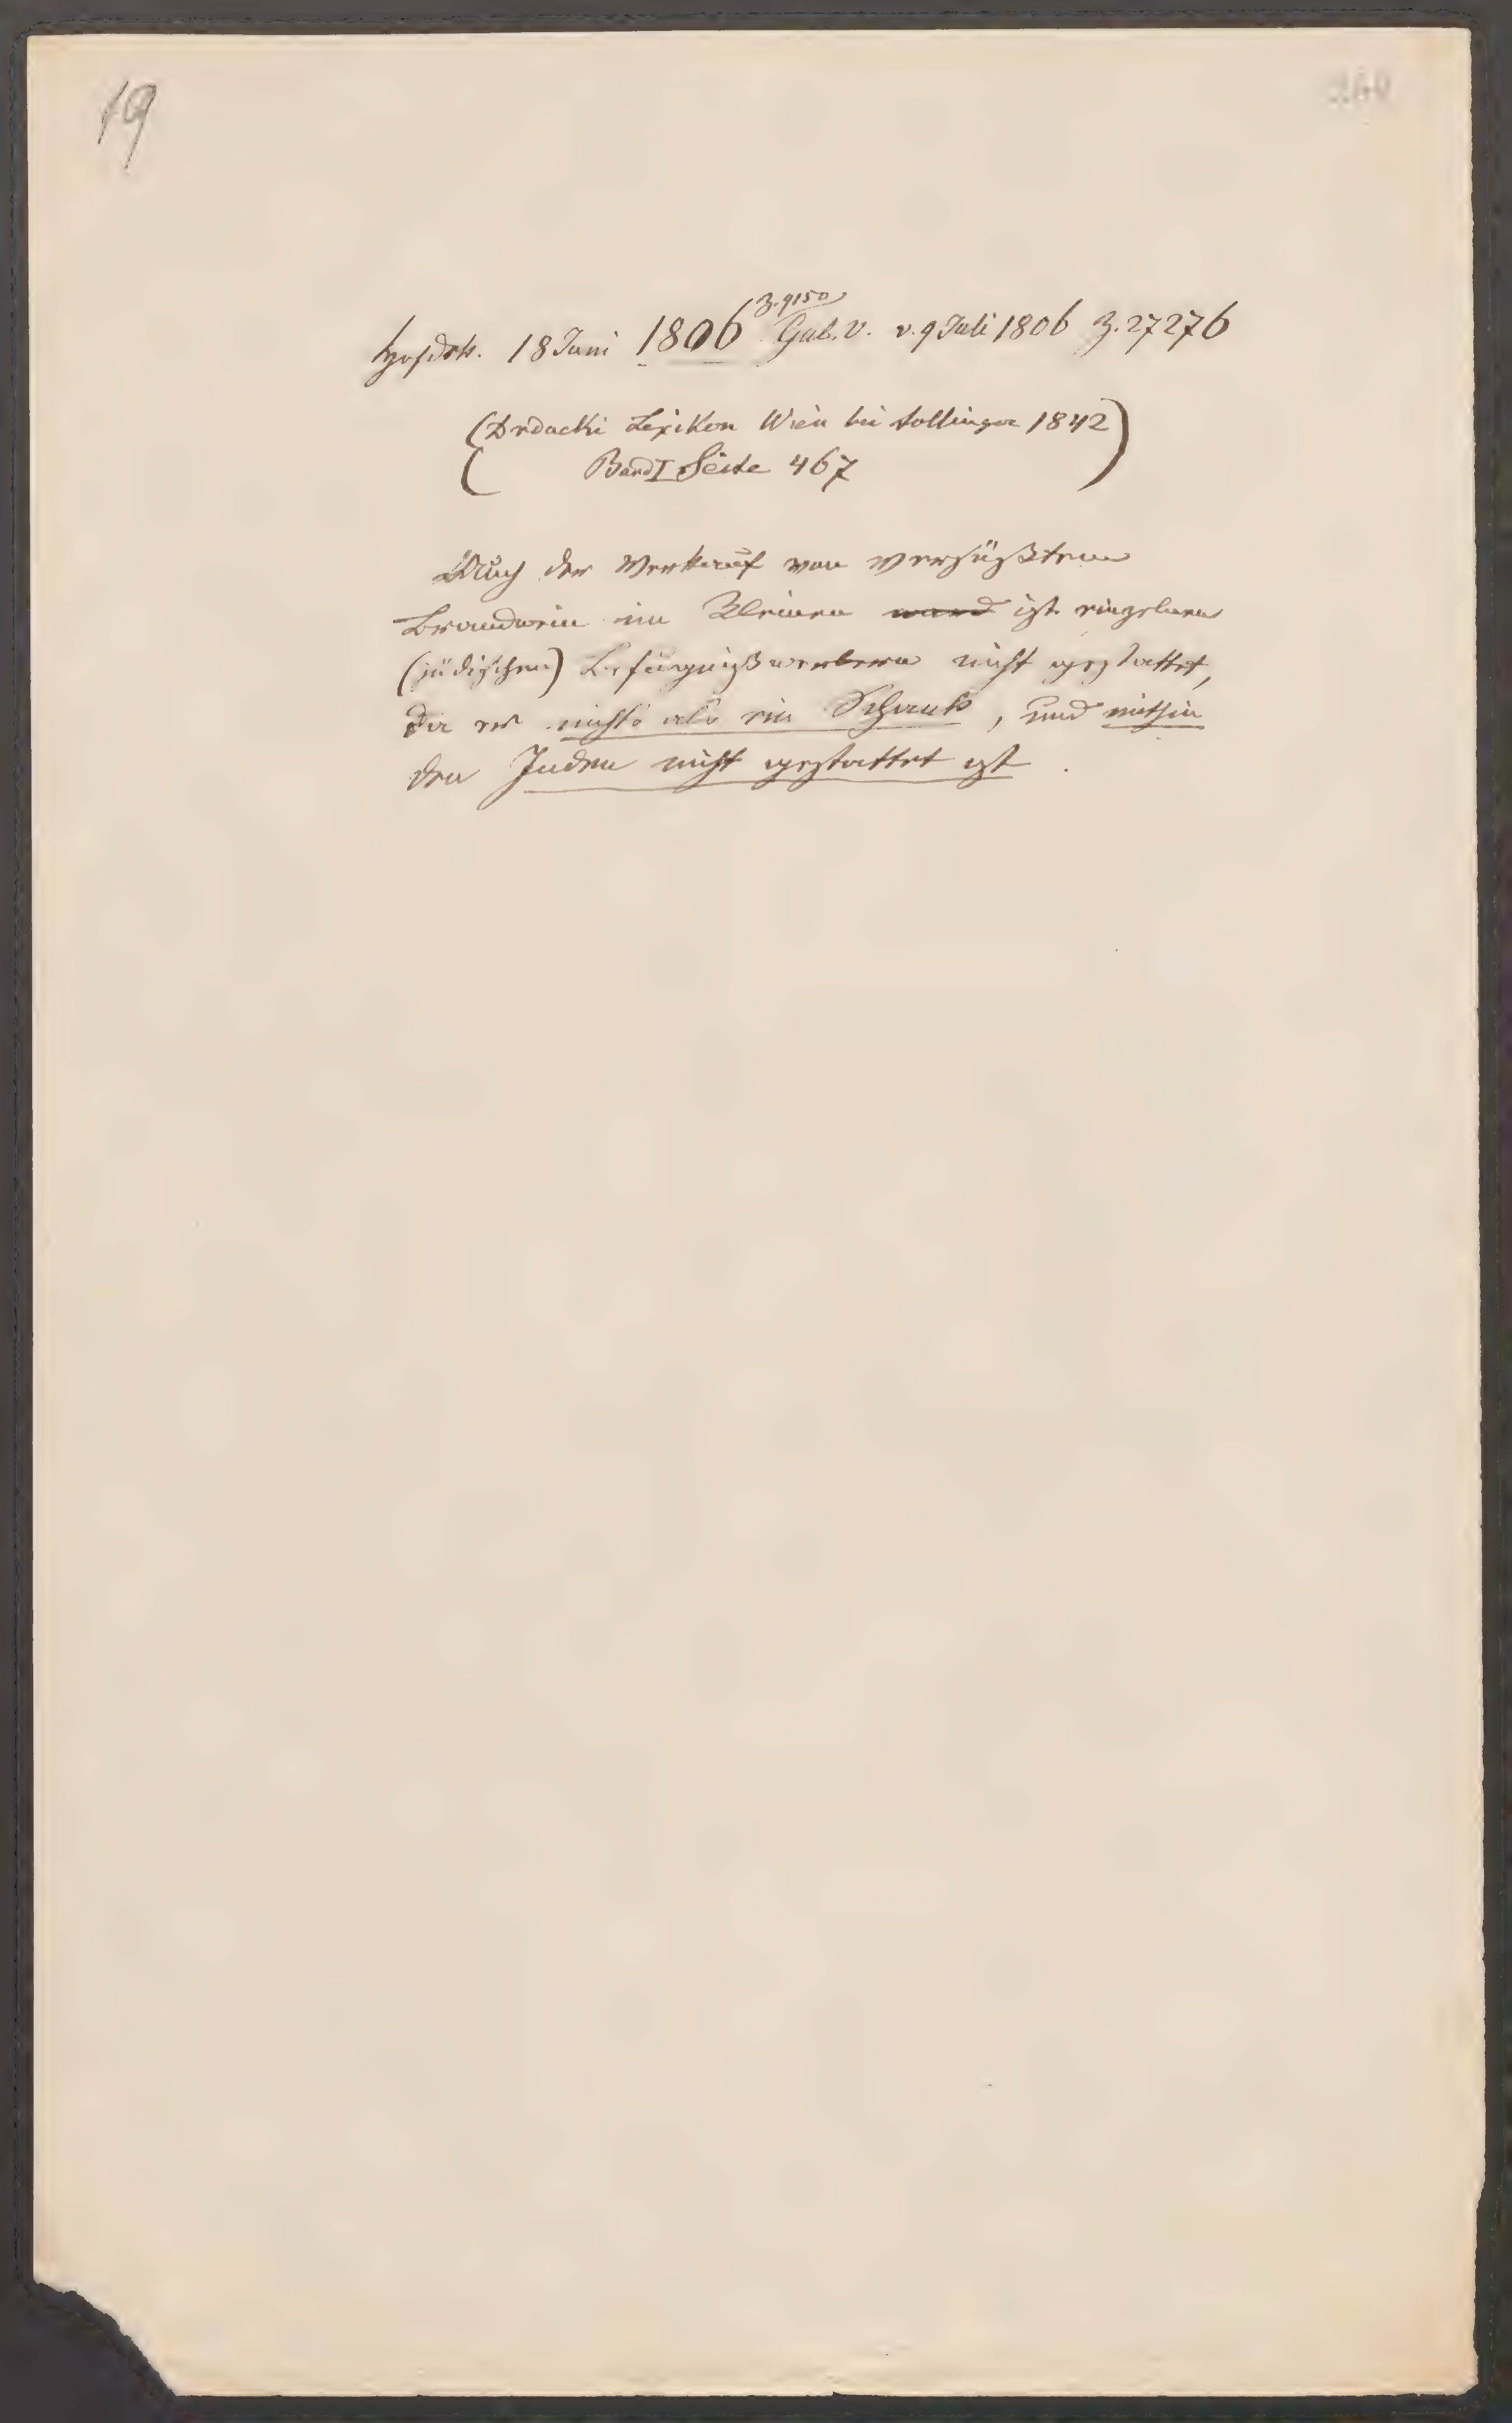 19
Hofdek. 18 Juni 1806 Z. 9150 Gub. V. v. 9 Juli 1806 Z. 27276
(Drdacki Lexikon Wien bei Sollinger 1842)
Band I Seite 467
Auch der Verkauf von versüßtem
Brandwein im Kleinen ward ist einzelnen
(jüdischen) Befugnißwerbern nicht gestattet,
da er nichts als ein Schank, und mithin
den Juden nicht gestattet ist.